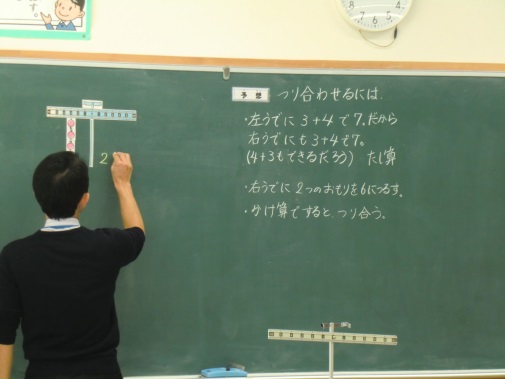 す。
8 7 6 5 4
予想 つり合わせるには
・左うでに 3+4 で 7。だから
右うでにも 3+4 で 7。
(4+3もできるだろう) たし算
・右うでに 2つのおもりを6につるす。
・かけ算ですると つり合う。
2